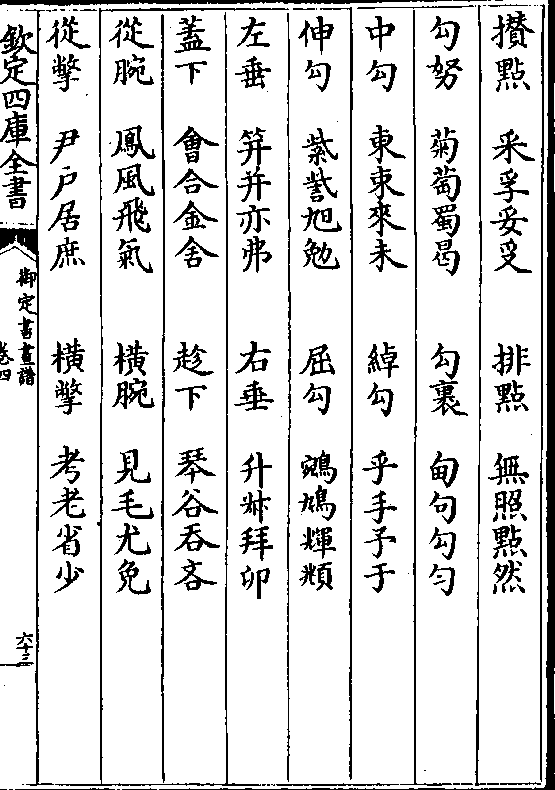 攢點　采孚妥受　排點　無照點然
勾努　菊萄蜀曷　勾裹　甸句勾匀
中勾　東柬來未　綽勾　乎手予于
伸勾　紫旭勉　屈勾　鳩輝
左垂　笄并亦弗　右垂　升拜卯
蓋下　會合金舍　趁下　琴谷吞吝
從腕　鳳風飛氣　橫腕　見毛尤免
從撆　尹戸居庶　橫撆　考老省少
欽定四庫全書
御定書畫譜
卷四
六十三